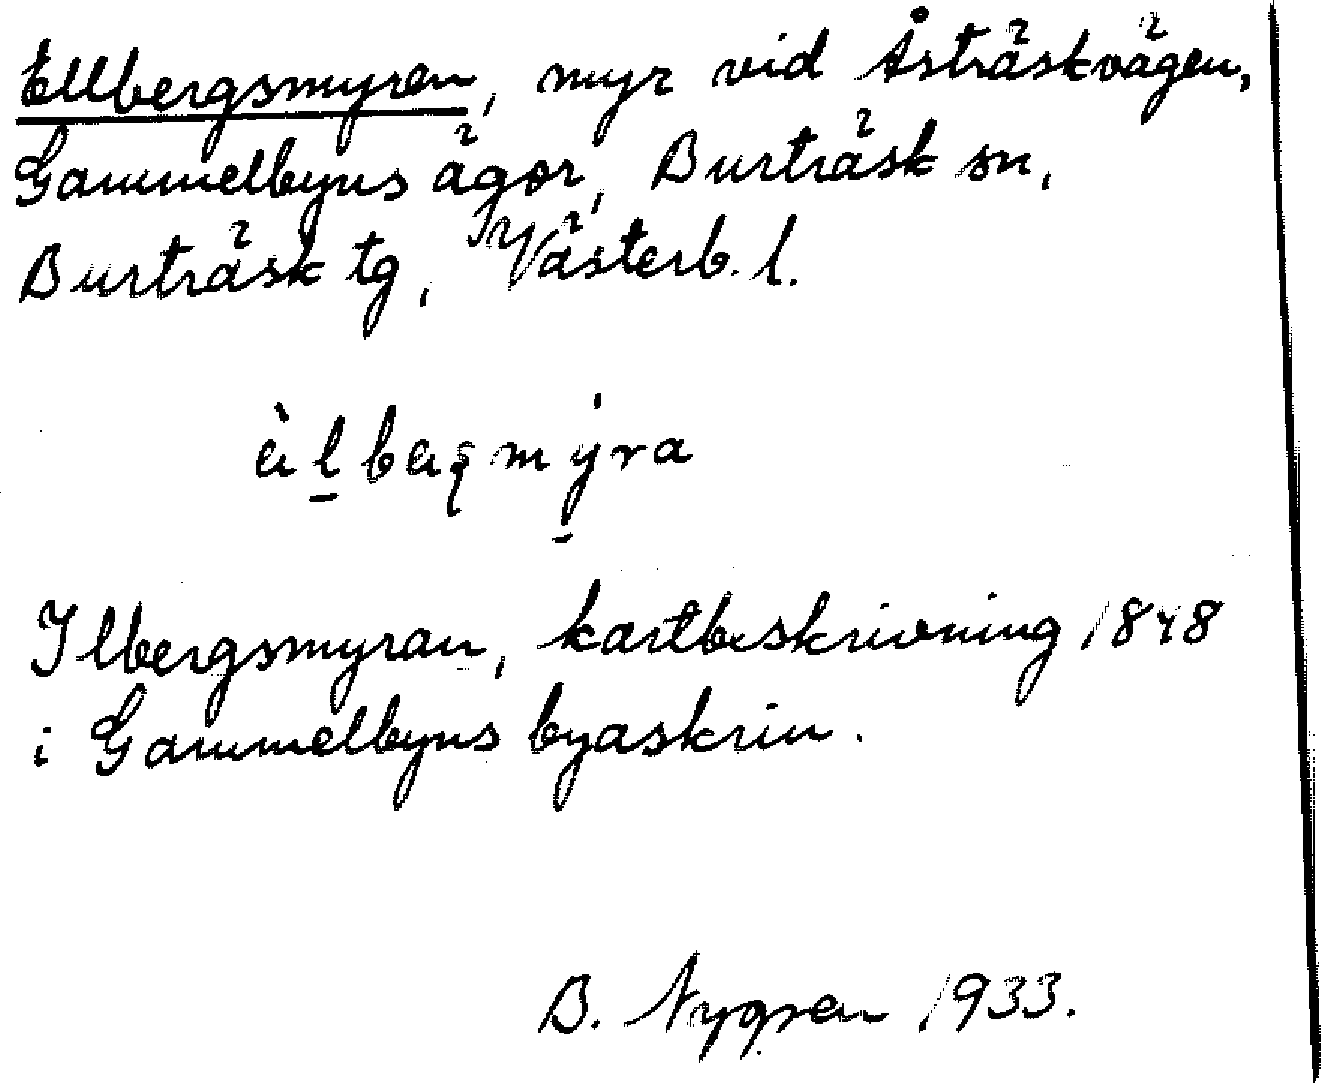 Ellbergsmyren, myr vid Åsträskvägen,
Gammelbyns ägor, Burträsk sn,
Burträsk tg, Västerb. l.
Ilbergsmyran, kartbeskrivning 1848
i Gammelbyns byaskrin.
B. Nygren 1933.